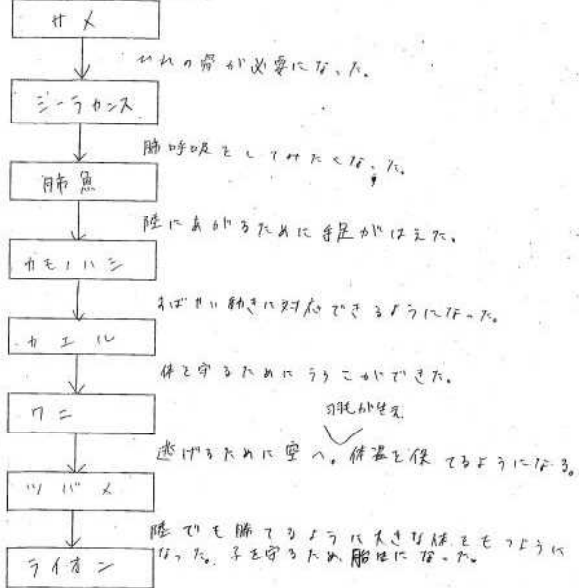 サメ
ひれの骨が必要になった。
シーラカンス
肺呼吸をしてみたくなった。
肺魚
陸にあがるために手足がはえた。
カモノハシ
すばやい動きに対応できるようになった。
カエル
体を守るためにうろこができた。
ワニ
羽毛が生え
逃げるために空へ。体温を保てるようになる。
ツバメ
陸でも勝てるように大きな体をもつように
なった。子を守るため、胎生になった。
ライオン